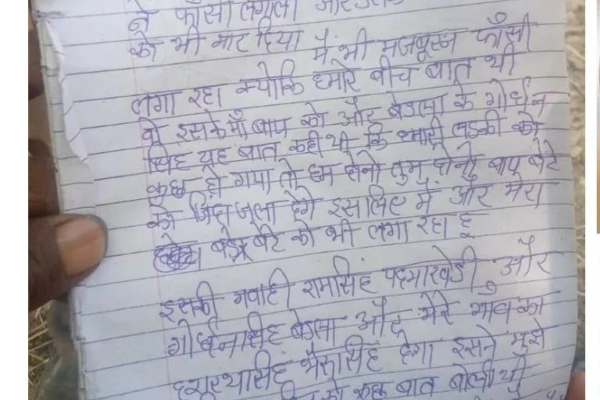 ने फाँसी लगाली और उसने
को भी मार दिया मैं भी मजबूरन फाँसी
लगा रहा क्योकि हमारे बीच बात थी
वो इसके माँ बाप को और बेडला के गोर्धन
सिंह यह बात कही थी कि हमारी लडकी को
कुछ हो गया तो हम दोनो तुम दोनो बाप बेटे
को जिंदा जला देंगे इसलिए में और मेरा
बडे बेटे को भी लगा रहा हू
इसकी गवाही रामसिंह पदमारखेडी और
गोर्धनसिंह बेडला और मेरे गाँव का
भैरूसिंह देगा इसने मुझे
को कुछ बात बोली थी